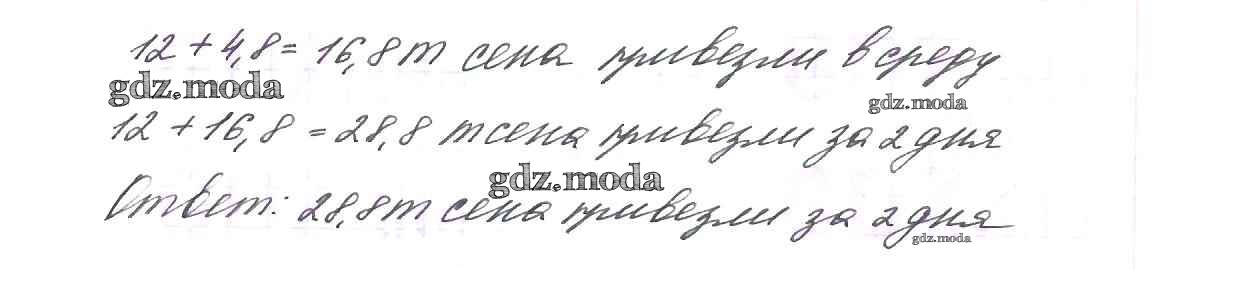 12 + 4,8 = 16,8 т сена привезли в среду
gdz.moda
gdz.moda
12 + 16,8 = 28,8 т сена привезли за 2 дня
gdz.moda
Ответ: 28,8 т сена привезли за 2 дня
gdz.moda